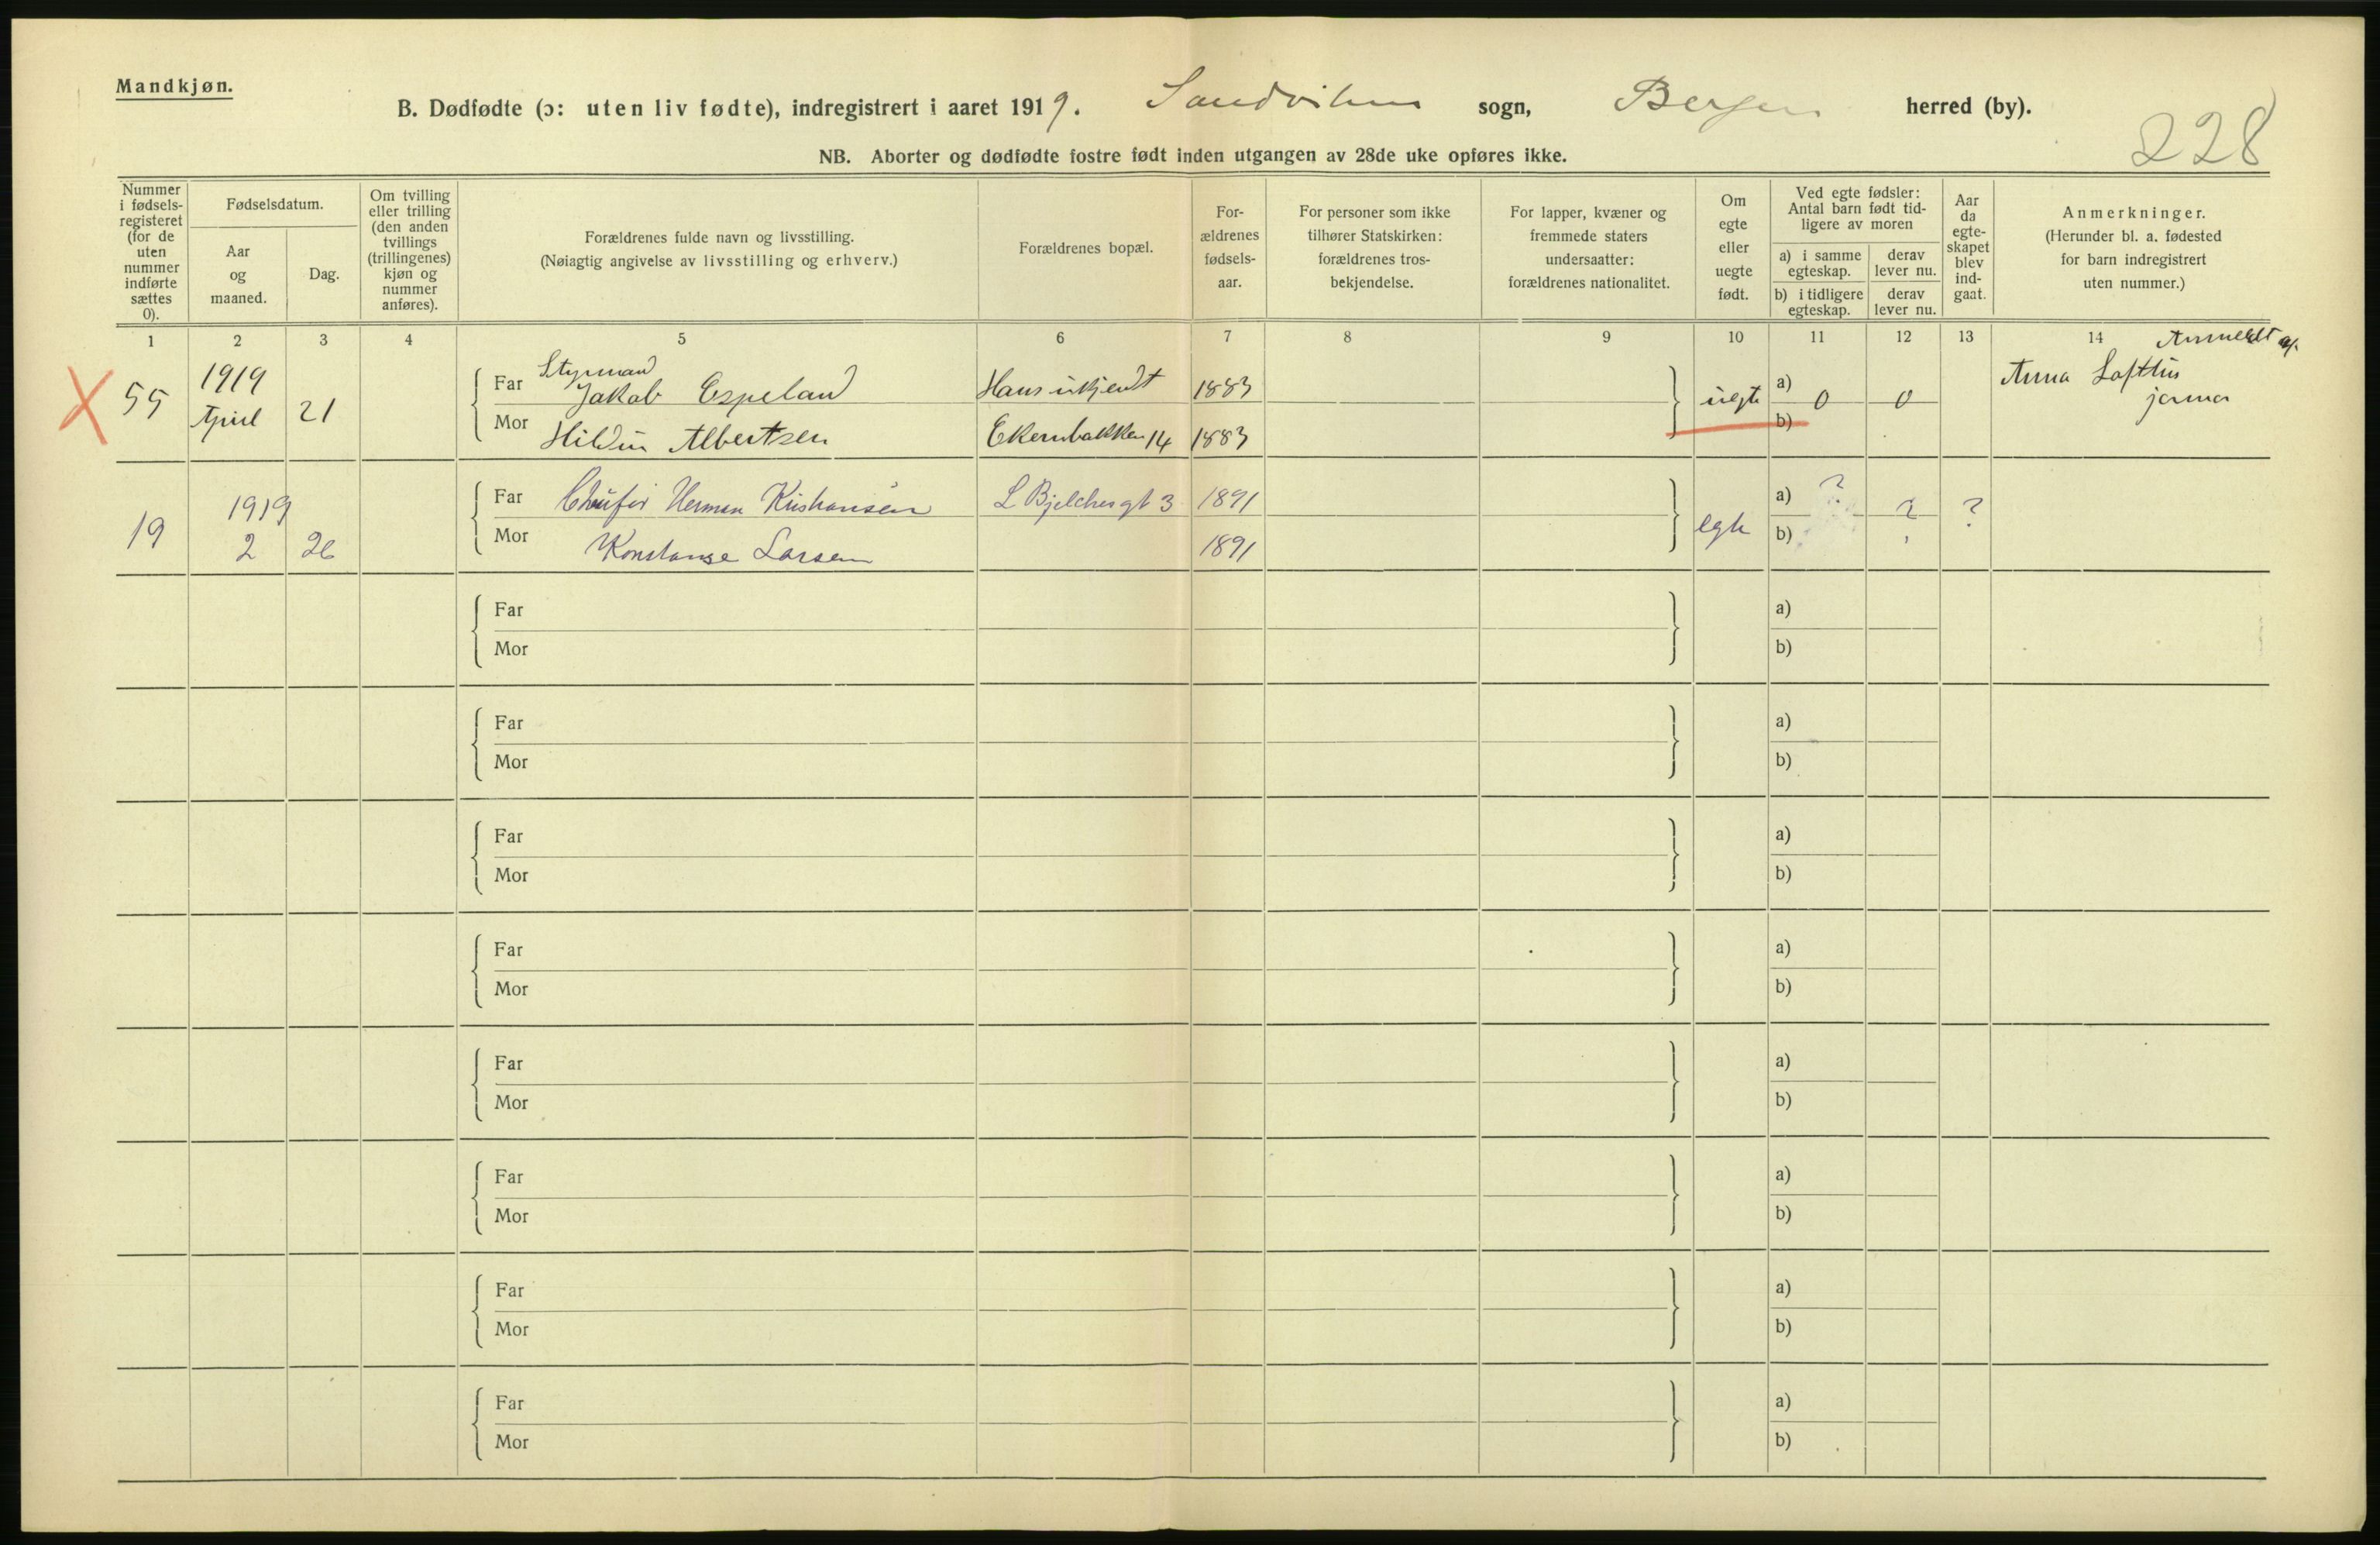 Mandkjøn.
B. Dødfødte (ɔ: uten liv fødte), indregistrert i aaret 1919. Sandviken sogn, Bergen herred (by).
228
NB. Aborter og dødfødte fostre født inden utgangen av 28de uke opføres ikke.
Nummer i fødsels-registeret (for de uten nummer indførte sættes 0).
Fødselsdatum.
Aar og maaned.
Dag.
Om tvilling eller trilling (den anden tvillings (trillingenes) kjøn og nummer anføres).
Forældrenes fulde navn og livsstilling.
(Nøiagtig angivelse av livsstilling og erhverv.)
Forældrenes bopæl.
For-ældrenes fødsels-aar.
For personer som ikke tilhører Statskirken: forældrenes tros-bekjendelse.
For lapper, kvæner og fremmede staters undersaatter: forældrenes nationalitet.
Om egte eller uegte født.
Ved egte fødsler: Antal barn født tid-ligere av moren
a) i samme egteskap.
derav lever nu.
b) i tidligere egteskap.
derav lever nu.
Aar da egte-skapet blev ind-gaat.
Anmerkninger.
(Herunder bl. a. fødested for barn indregistrert uten nummer.)
1 2 3 4 5 6 7 8 9 10 11 12 13 14
Anmeldt af
X 55 1919 April 21
Styrmand
Far Jakob Espeland Hans ukjendt 1883
Mor Albertsen Ekernbakken 14 1883
uegte a) 0 0
b)
Anna Lofthus
jormor
19 1919 2 26
Far Herman Kristiansen L Bjelchesgt 3 1891
Mor Konstanse Larsen 1891
egte a) ? ? ?
b)
Far a)
Mor b)
Far a)
Mor b)
Far a)
Mor b)
Far a)
Mor b)
Far a)
Mor b)
Far a)
Mor b)
Far a)
Mor b)
Far a)
Mor b)